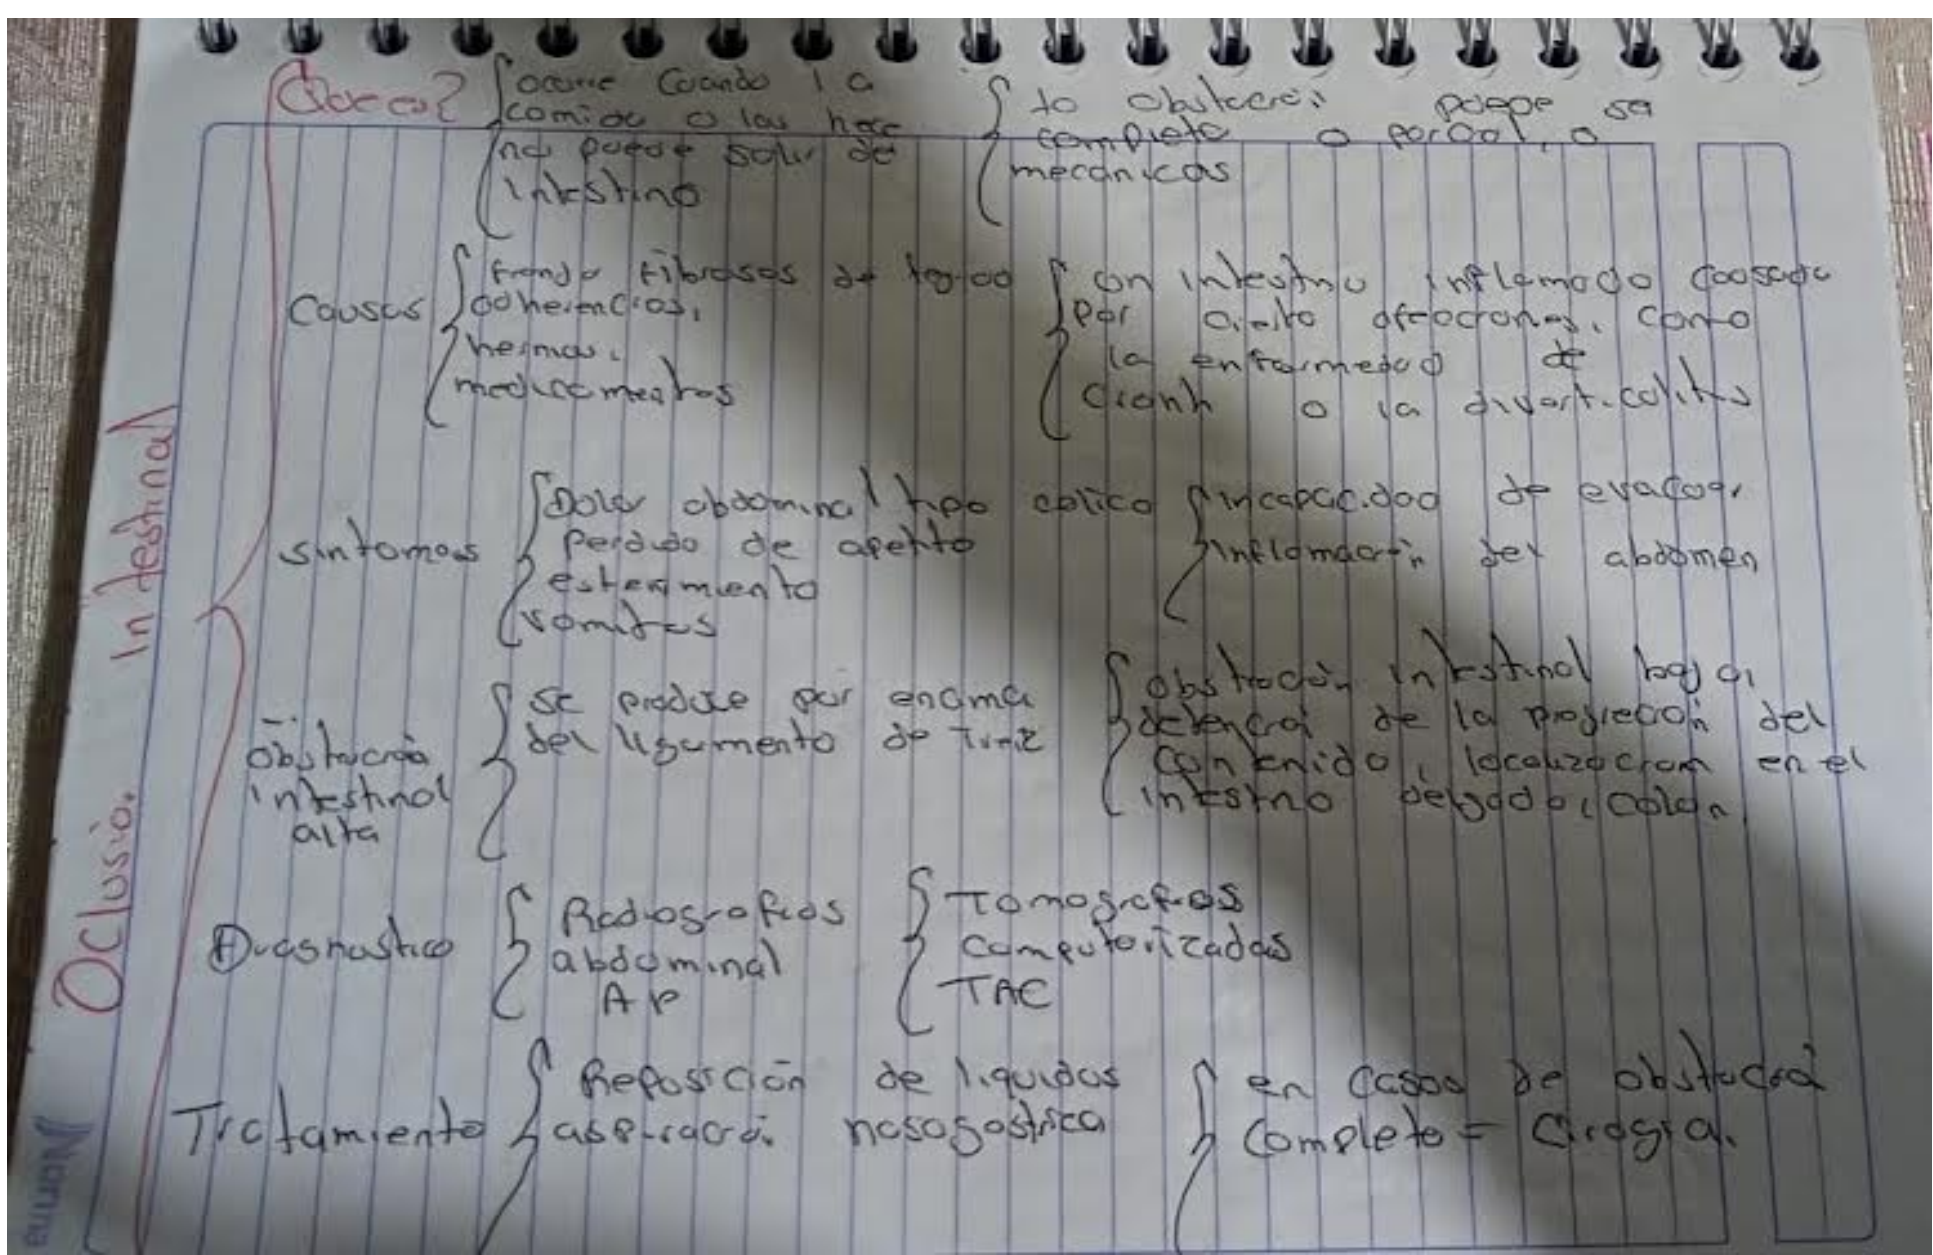 Oclusio. Intestinal
Que es?
ocurre cuando la
comida o las hece
no puede salir de
intestino
la obstrucció puede se
completa o parcial, o
mecánicas
Causas
fibrosas de
adherencias,
hernias,
medicamentos
un intestino inflamado causada
por cierto afecciones, como
la enfermedad de
Cronh o la diverticolitis
sintomas
Dolor abdominal tipo colico
Perdida de apetito
estenimiento
vomitos
incapacidad de evacuar
inflamación del abdomen
obstrucció
intestinal
alta
se produce por encima
del ligamento de
Obstrucción intestinal baja,
detenció de la progreción del
contenido, localizacion en el
intestino delgado, colon
Diagnostico
Radiografias
abdominal
AP
Tomografias
computorizadas
TAC
Tratamiento
Reposición de liquidos
aspiració. nasogastrica
en casos de obstrucció
completo = Cirogia.
Norma